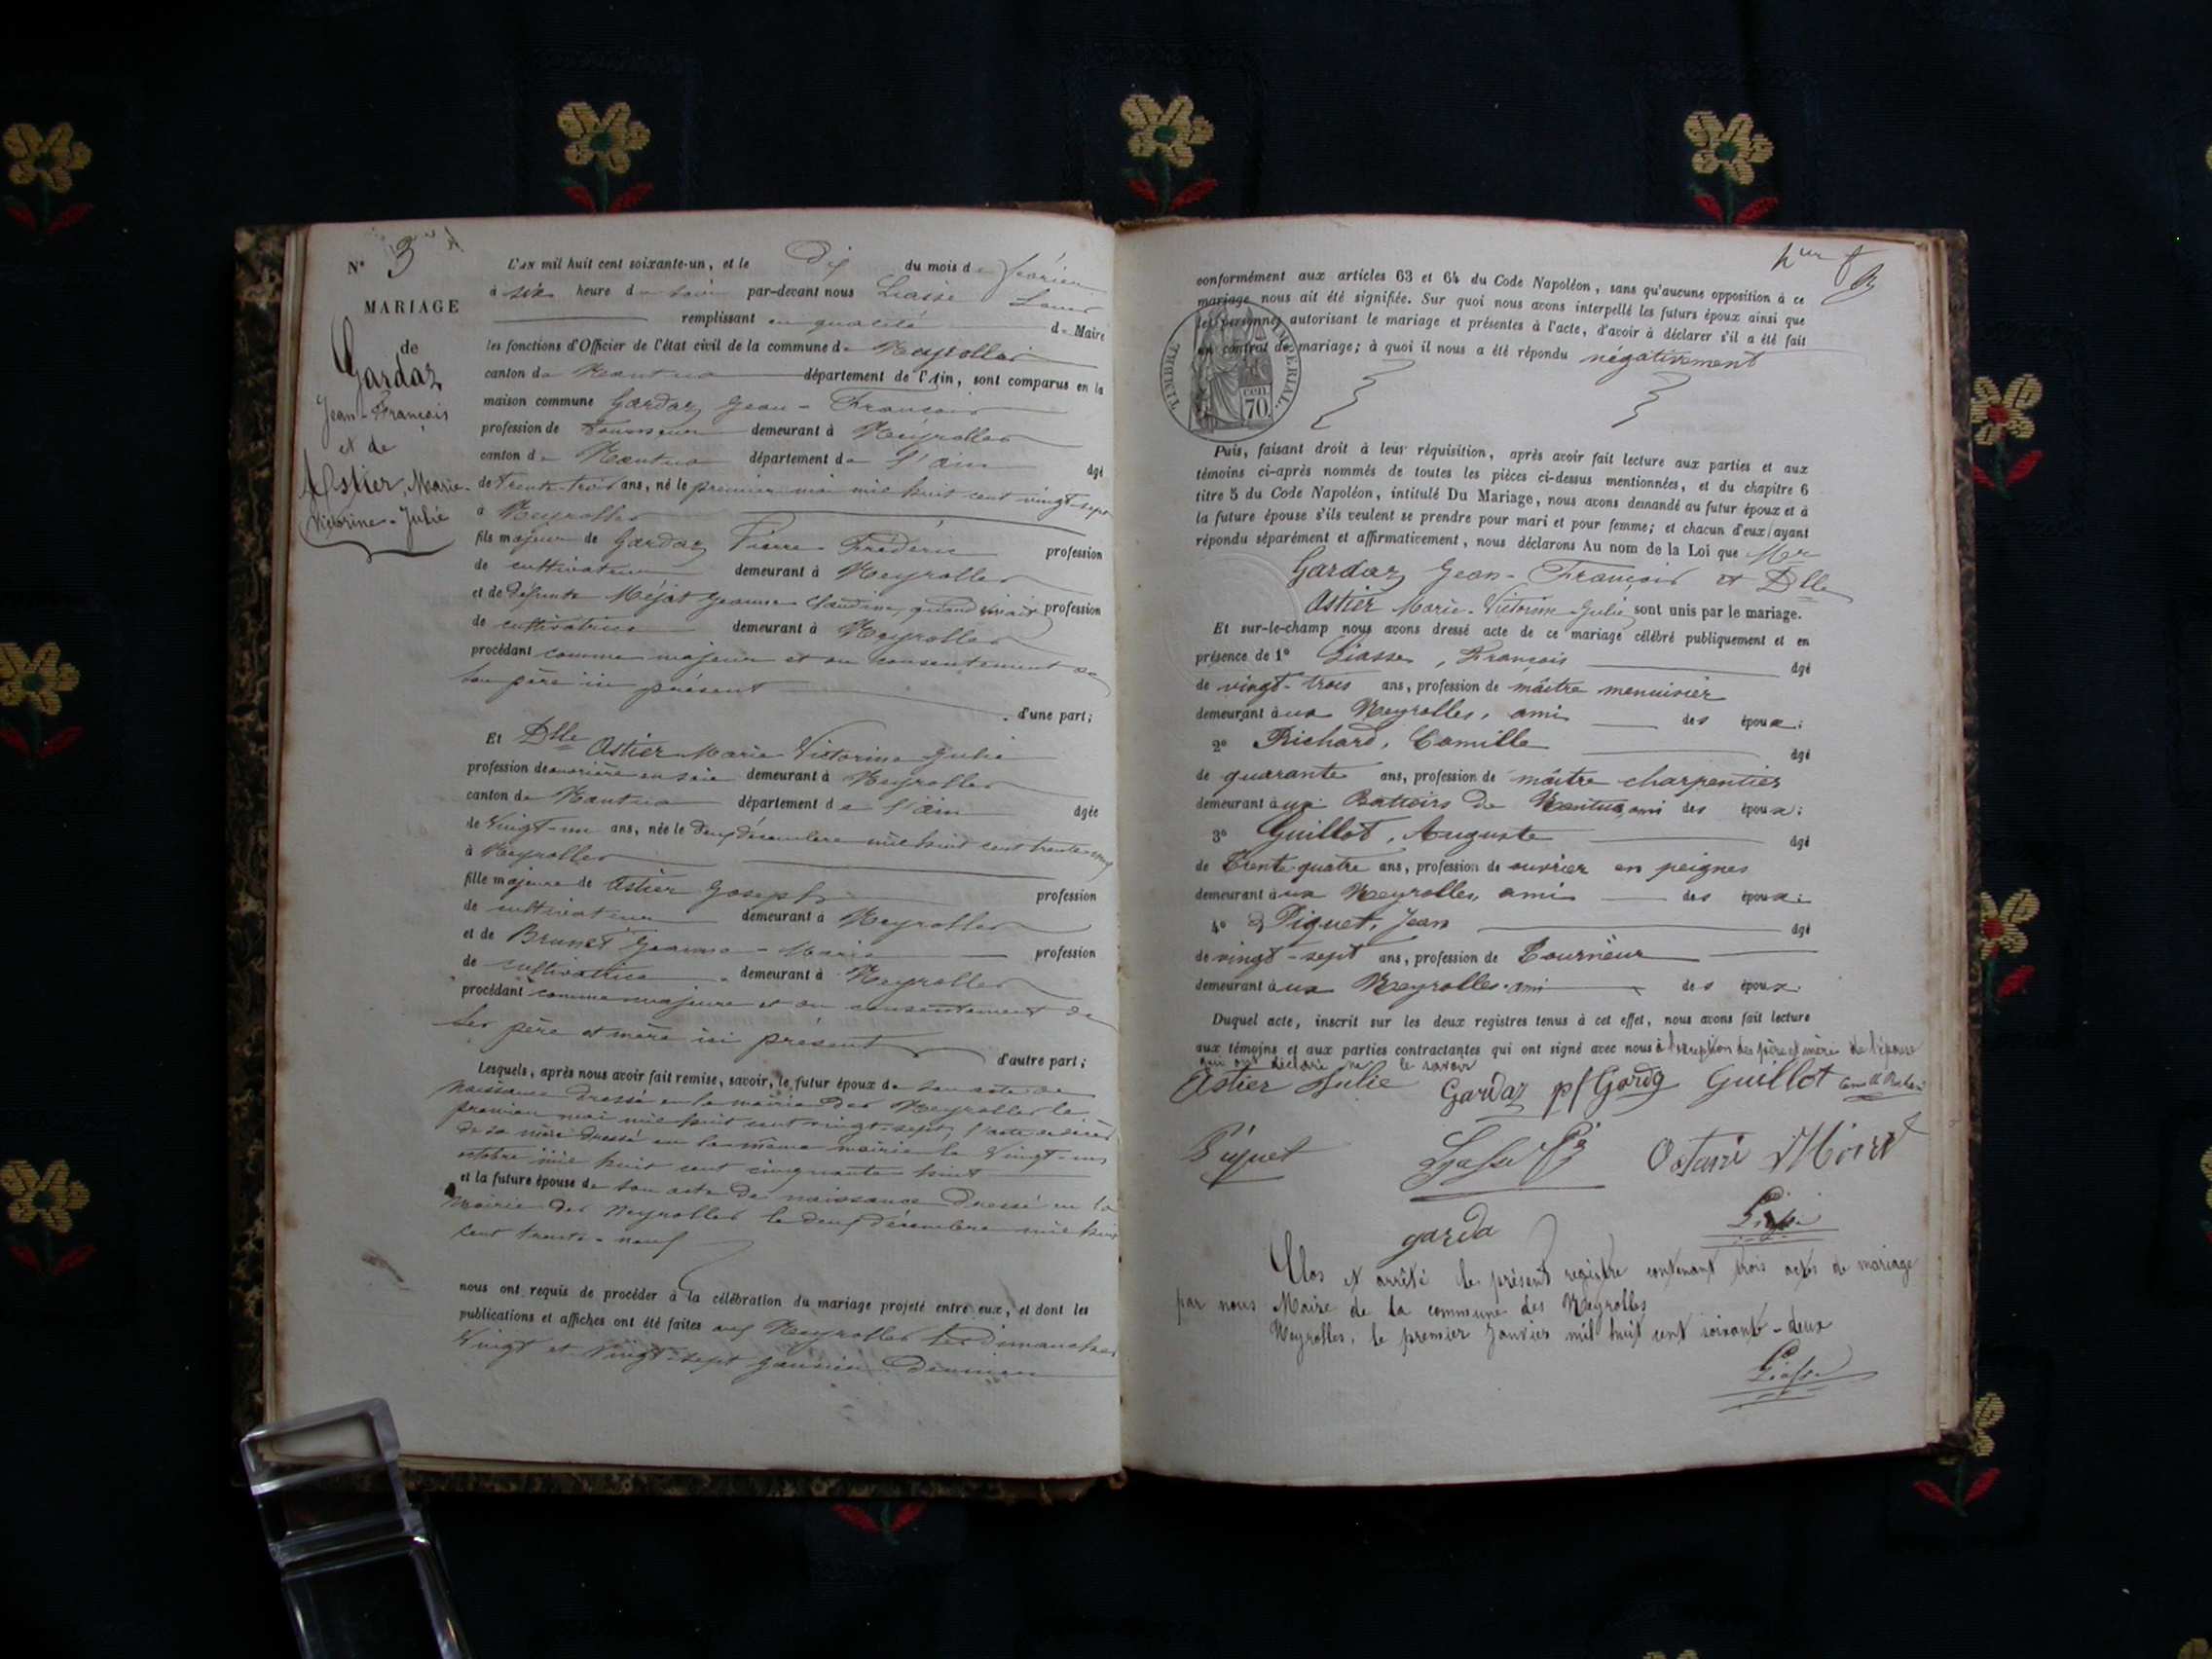 N° 3
MARIAGE
de
Gardaz
Jean-François
et de
Astier, Marie-
Victorine-Julie
L'AN mil huit cent soixante-un, et le Dix du mois de février
à six heure du soir par-devant nous Liasse
remplissant en qualité de Maire
les fonctions d'Officier de l'état civil de la commune de Neyrolles
canton de Nantua département de l'Ain, sont comparus en la
maison commune Gardaz Jean-François
profession de Tourneur demeurant à Neyrolles
canton de Nantua département de l'ain âgé
de trente-trois ans, né le premier mai mil huit cent vingt-sept
à Neyrolles
fils majeur de Gardaz Pierre Frédéric profession
de cultivateur demeurant à Neyrolles
et de défunte Méjat Jeanne Claudine, quand vivait profession
de cultivatrice demeurant à Neyrolles
procédant comme majeur et du consentement de
son père ici présent
d'une part;
Et Dlle Astier Marie Victorine Julie
profession de ouvrière en soie demeurant à Neyrolles
canton de Nantua département de l'ain âgée
de Vingt-un ans, née le deux décembre mil huit cent trente-neuf
à Neyrolles
fille majeure de Astier Joseph profession
de cultivateur demeurant à Neyrolles
et de Brunet Jeanne-Marie profession
de cultivatrice demeurant à Neyrolles
procédant comme majeure et du consentement de
ses père et mère ici présent
d'autre part;
Lesquels, après nous avoir fait remise, savoir, le futur époux de son acte de
naissance dressé en la mairie des Neyrolles le
premier mai mil huit cent vingt-sept, l'acte de décès
de sa mère dressé en la même mairie le Vingt-un
octobre mil huit cent cinquante-huit
et la future épouse de son acte de naissance dressé en la
mairie des Neyrolles le deux décembre mil huit
cent trente-neuf
nous ont requis de procéder à la célébration du mariage projeté entre eux, et dont les
publications et affiches ont été faites aux Neyrolles les Dimanches
Vingt et Vingt-sept Janvier Dernier
conformément aux articles 63 et 64 du Code Napoléon, sans qu'aucune opposition à ce
mariage nous ait été signifiée. Sur quoi nous avons interpellé les futurs époux ainsi que
les personnes autorisant le mariage et présentes à l'acte, d'avoir à déclarer s'il a été fait
un contrat de mariage; à quoi il nous a été répondu négativement
TIMBRE IMPERIAL
cen
70
Puis, faisant droit à leur réquisition, après avoir fait lecture aux parties et aux
témoins ci-après nommés de toutes les pièces ci-dessus mentionnées, et du chapitre 6
titre 5 du Code Napoléon, intitulé Du Mariage, nous avons demandé au futur époux et à
la future épouse s'ils veulent se prendre pour mari et pour femme; et chacun d'eux ayant
répondu séparément et affirmativement, nous déclarons Au nom de la Loi que Mr
Gardaz Jean-François et Dlle
Astier Marie-Victorine-Julie sont unis par le mariage.
Et sur-le-champ nous avons dressé acte de ce mariage célébré publiquement et en
présence de 1° Liasse, François âgé
de vingt-trois ans, profession de maître menuisier
demeurant à ux Neyrolles, ami des époux;
2° Richard, Camille âgé
de quarante ans, profession de maître charpentier
demeurant à ux Battoirs de Nantua, ami des époux;
3° Guillot, Auguste âgé
de Trente-quatre ans, profession de ouvrier en peignes
demeurant à ux Neyrolles, ami des époux;
4° Piquet, Jean âgé
de vingt-sept ans, profession de Tourneur
demeurant à ux Neyrolles, ami des époux.
Duquel acte, inscrit sur les deux registres tenus à cet effet, nous avons fait lecture
aux témoins et aux parties contractantes qui ont signé avec nous à l'exception des père et mère de l'épouse
qui ont déclaré ne le savoir
Astier Julie Gardaz pf Garda Guillot
Piquet
garda Liasse
Clos et arrêté le présent registre contenant trois actes de mariage
par nous Maire de la commune des Neyrolles
Neyrolles, le premier Janvier mil huit cent soixante-deux
Liasse